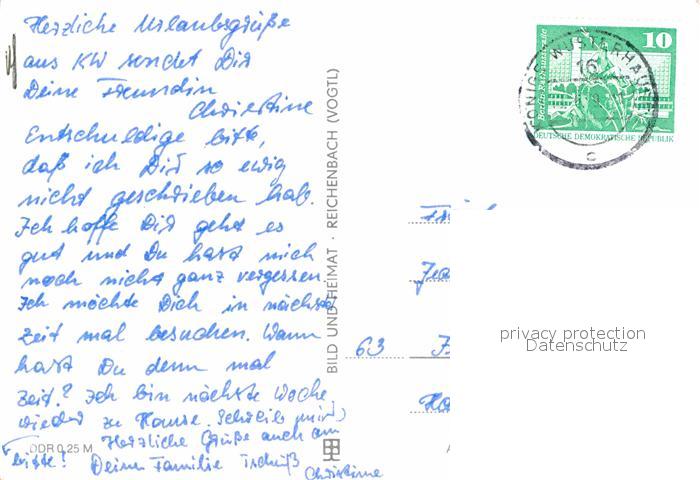 Herzliche Urlaubsgrüße
aus KW sendet Dir
Deine Freundin
Christine
Entschuldige bitte,
daß ich Dir so ewig
nicht geschrieben hab.
Ich hoffe Dir geht es
gut und Du hast mich
noch nicht ganz vergessen.
Ich möchte Dich in nächste
Zeit mal besuchen. Wann
hast Du denn mal
Zeit? Ich bin nächste Woche
wieder zu Hause. Schreib mir
bitte! Herzliche Grüße auch an
Deine Familie Tschüß
Christine
DDR 0,25 M
BILD UND HEIMAT · REICHENBACH (VOGTL)
10
Berlin, Rathausstraße
DEUTSCHE DEMOKRATISCHE REPUBLIK
KÖNIGS WUSTERHAUSEN
16
c
63
privacy protection
Datenschutz